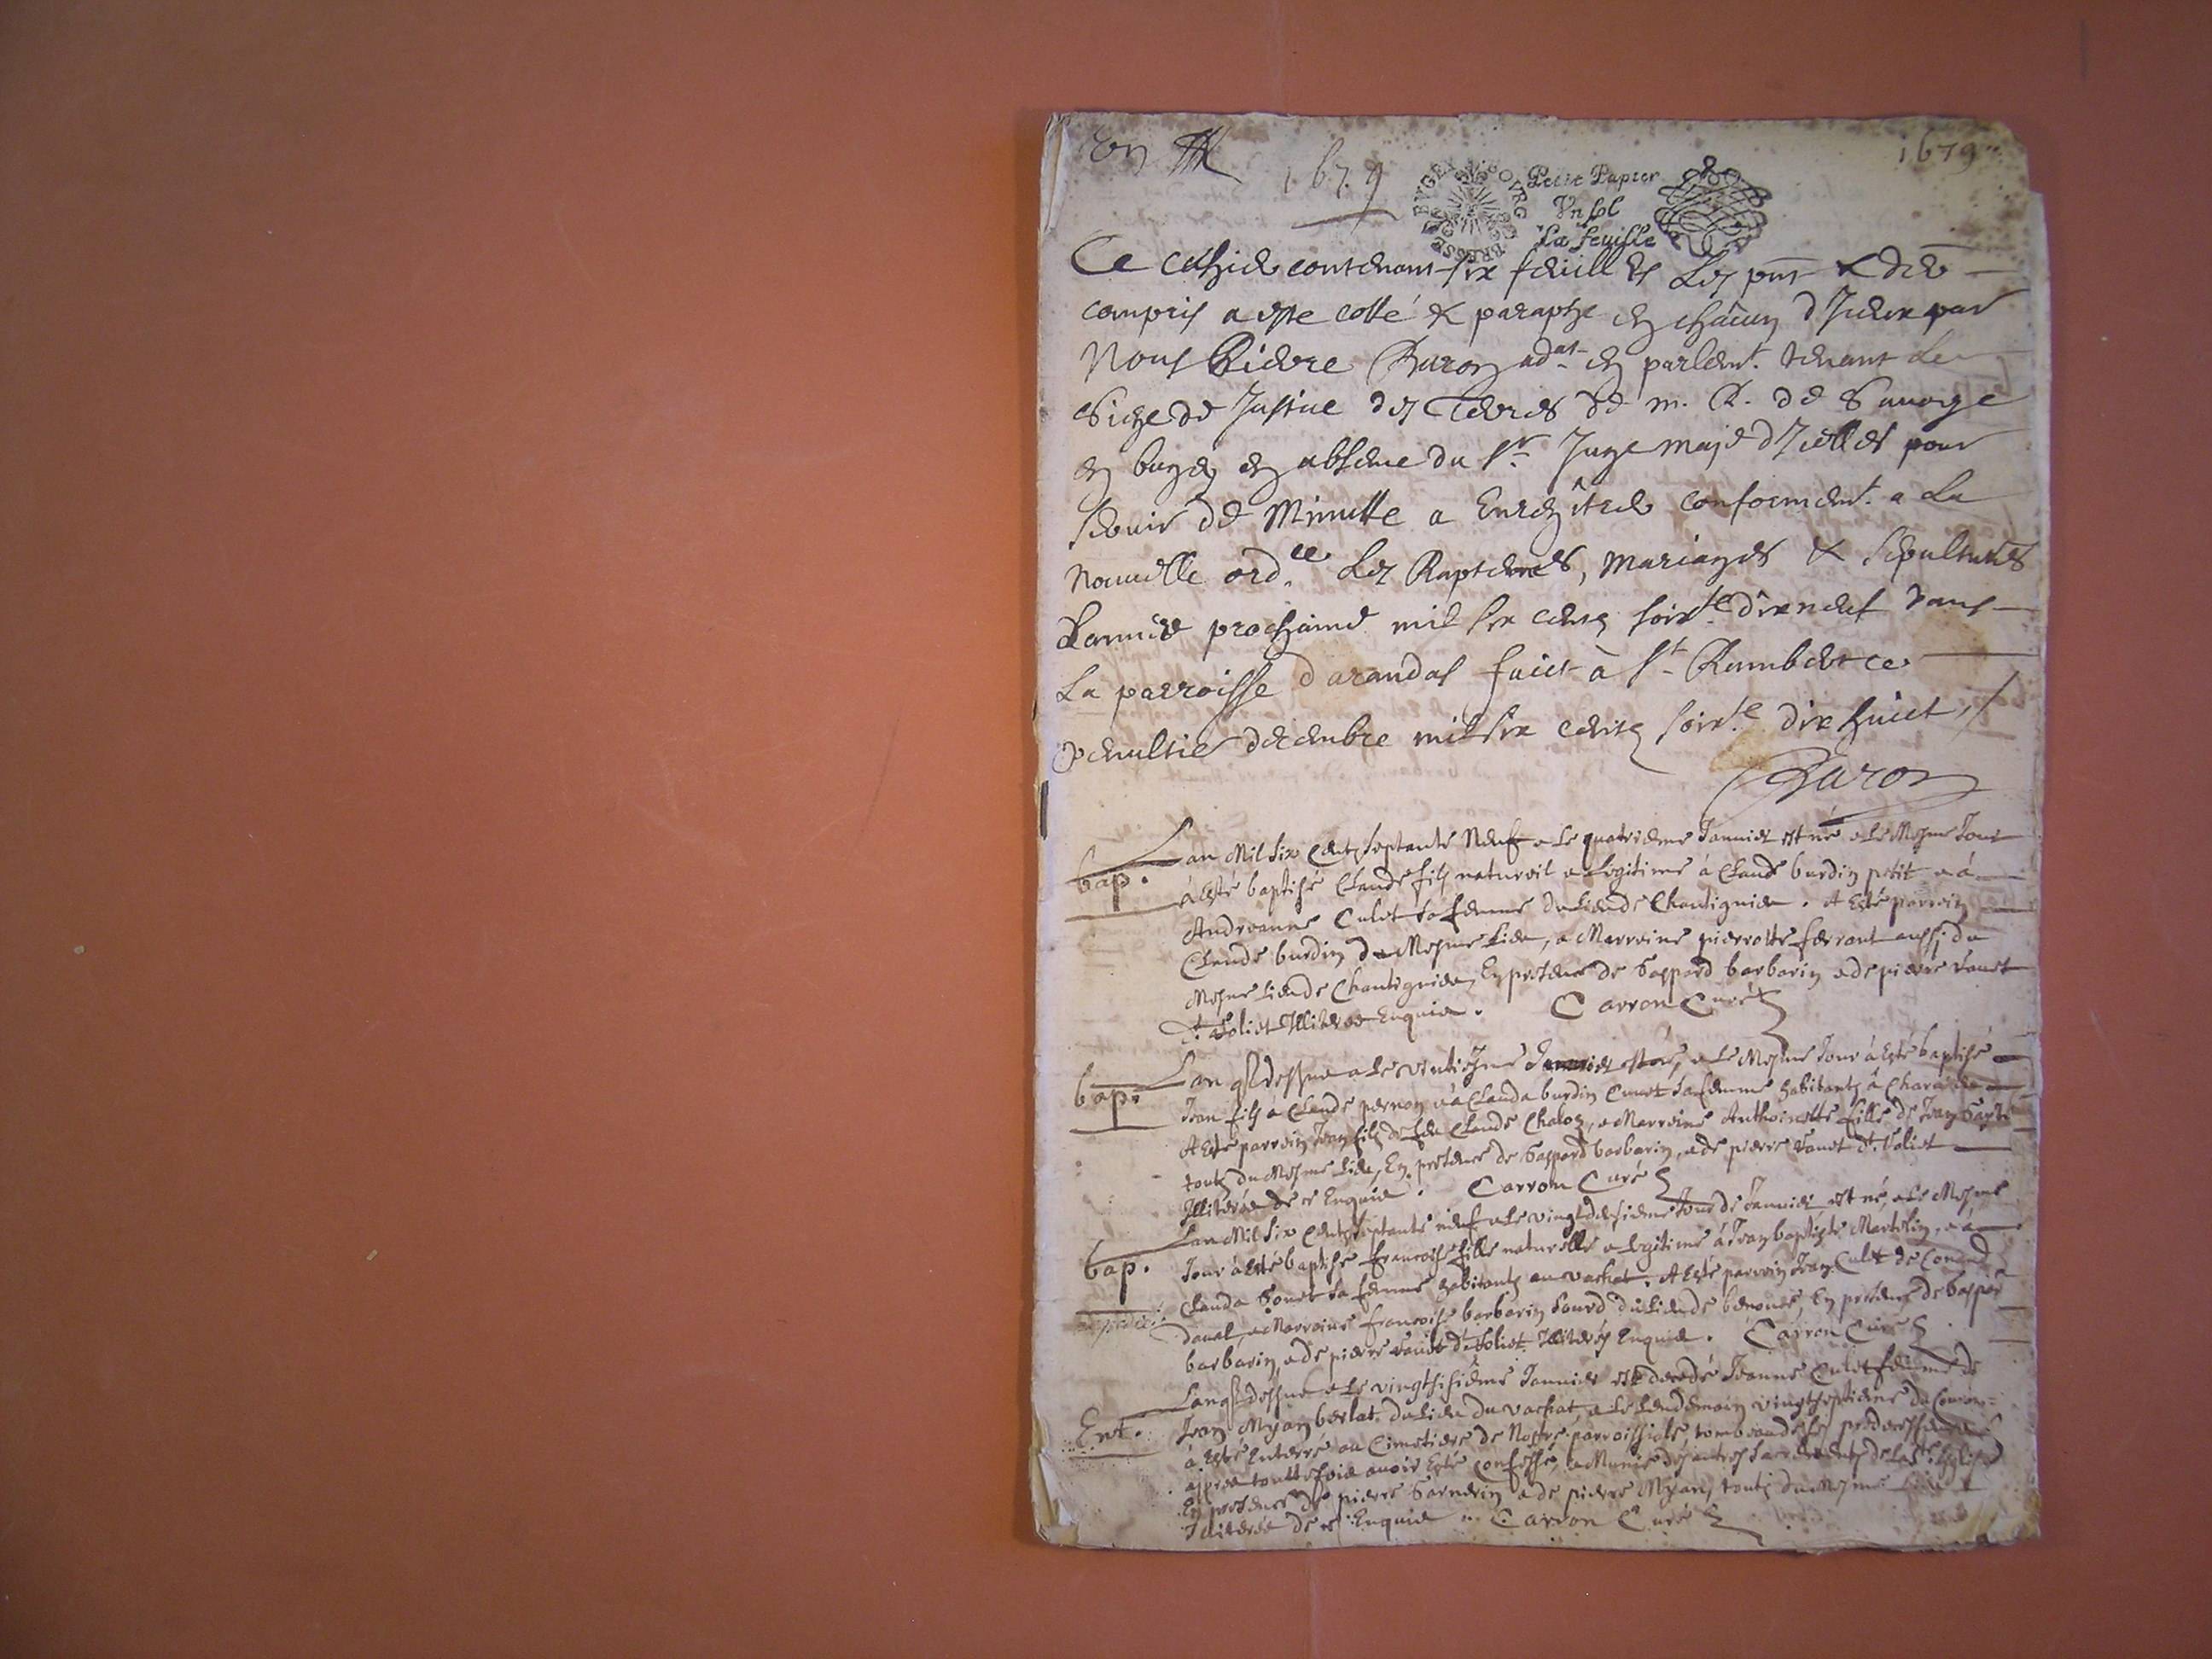 1679 1679
BVGEY BOVRG BRESSE
Petit Papier
Vn sol
La feuille
Ce cahier contenant six feuilles les pnt & der
compris a este cotté & paraphe en chacun d'Iceux par
Nous Pierre Baron adat en parlemt. tenant le
Siege de Justice des Terres de m. R. de Savoye
en bugey en absence du Sr. Juge maje d'Icelles pour
servir de Minutte a Enregîtrer conformemt. a la
nouvelle ordce. Les Baptemes, mariages & sepultures
L'année prochaine mil six cents soixte. dix neuf dans
La parroisse d'arandas faict à St. Rambert ce
penultie decembre mil six cents soixte. dix huict
Baron
bap. Lan Mil Six Cents septante Neuf & le quatrieme Januier est né & le Mesme Jour
à esté baptisé Claude fils naturel & legitime à Claude burdin petit & à
Andreanne Culet sa femme du lieu de Chantignieu. A Esté parrein
Claude burdin du Mesme lieu, & Marreine pierrotte ferrant aussi du
Mesme lieu de Chantignieu, En presence de Gaspard barbarin & de pierre
dt. Joliet Illiteres Enquis. Carron Curé
bap. Lan qe dessus & le vintiesme Januier est né, & le Mesme Jour à Esté baptisé
Jean fils à Claude pernon & à Clauda burdin Cunet sa femme habitants à
A Esté parrein Jean fils de feu Claude Chaloz, & Marreine Anthoinette fille de Jean
touts du Mesme lieu, En presence de Gaspard barbarin, & de pierre dt. Joliet
Illiterés de ce Enquis. Carron Curé
bap. Lan Mil Six Cents septante neuf & le vingtdeusieme Jour de Januier est né, & le Mesme
Jour à Esté baptisé francoise fille naturelle & legitime à Jean baptiste Martelin, & à
Clauda sa femme habitants au vachat. A Esté parrein Jean Culet de Conand
daual, & Marreine francoise barbarin du lieu de, En presence de Gaspar
barbarin, & de pierre dt. Joliet Illiterés Enquis. Carron Curé
Ent. Lan qe dessus & le vingthisieme Januier est decedé Jeanne Culet femme de
Jean Myan berlat du lieu du vachat, & le lendemain vingtseptieme du
à Esté Enterré au Cimetiere de Nostre parroissiale, tombeau de ses predecesseurs
apres touttefois auoir Esté confessé, & Munie des autres sacrements de la Ste. Eglise
En presence de pierre Garnerin & de pierre Myan, touts du Mesme lieu
Illiterés de ce Enquis. Carron Curé